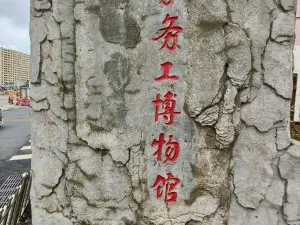 务工博物馆